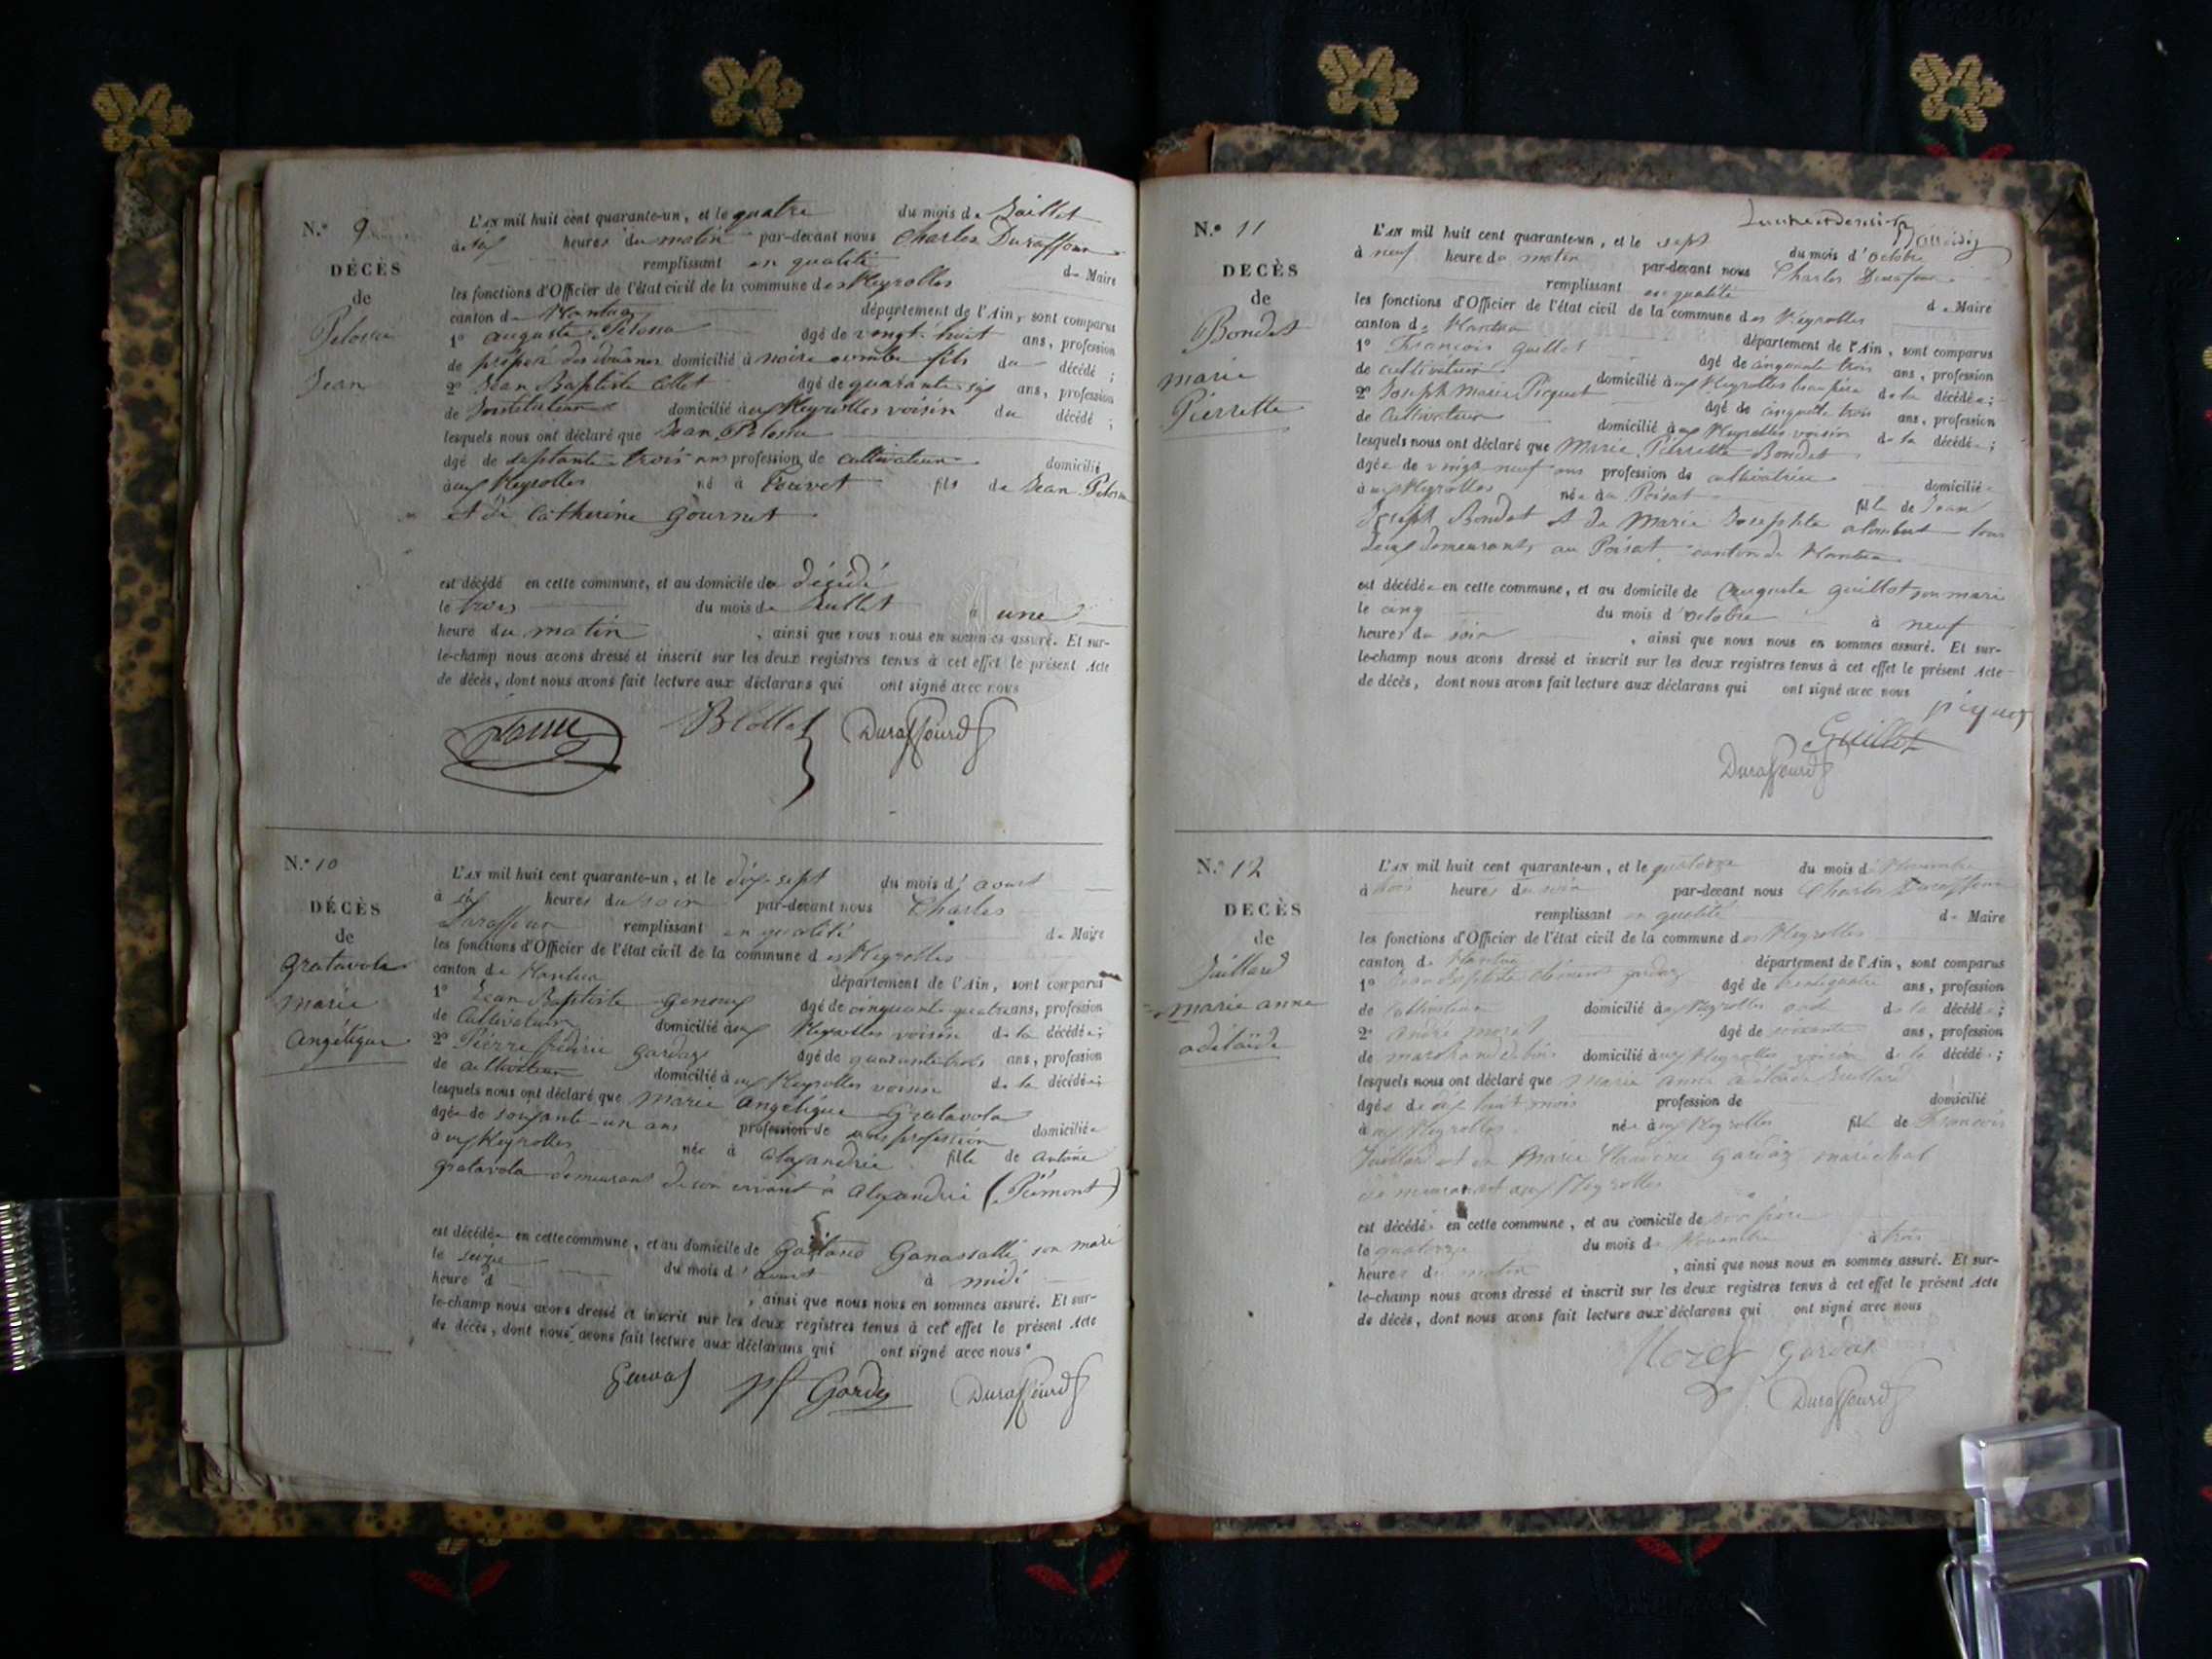 N.° 9
DÉCÈS
de
Pelossu
Jean
L'AN mil huit cent quarante-un, et le quatre du mois de Juillet
à six heures du matin par-devant nous Charles Duraffour
remplissant en qualité de Maire
les fonctions d'Officier de l'état civil de la commune des Neyrolles
canton de Nantua département de l'Ain, sont comparus
1° auguste Pelossu âgé de vingt-huit ans, profession
de préposé des douanes domicilié à noire combe fils du décédé ;
2° Jean Baptiste Collet âgé de quarante six ans, profession
de Instituteur domicilié aux Neyrolles voisin du décédé ;
lesquels nous ont déclaré que Jean Pelossu
âgé de septante-trois ans profession de cultivateur domicilié
aux Neyrolles né à fils de Jean Pelossu
et de Catherine Gournet
est décédé en cette commune, et au domicile du décédé
le trois du mois de Juillet à une
heure du matin, ainsi que nous nous en sommes assuré. Et sur-
le-champ nous avons dressé et inscrit sur les deux registres tenus à cet effet le présent Acte
de décès, dont nous avons fait lecture aux déclarans qui ont signé avec nous
Collet Duraffourd
N.° 10
DÉCÈS
de
Gratavola
marie
angélique
L'AN mil huit cent quarante-un, et le dix-sept du mois d'aout
à six heures du soir par-devant nous Charles
Duraffour remplissant en qualité de Maire
les fonctions d'Officier de l'état civil de la commune des Neyrolles
canton de Nantua département de l'Ain, sont comparus
1° Jean Baptiste âgé de cinquante quatre ans, profession
de Cultivateur domicilié aux Neyrolles voisin de la décédée ;
2° Pierre frédéric gardaz âgé de quarante trois ans, profession
de cultivateur domicilié aux Neyrolles voisin de la décédée ;
lesquels nous ont déclaré que Marie angélique Gratavola
âgée de soixante-un ans profession de sans profession domiciliée
aux Neyrolles née à alexandrie fille de antoine
gratavola demeurant de son vivant à alexandrie (Piémont)
est décédée en cette commune, et au domicile de son mari
le seize du mois d'aout à midi
heure d , ainsi que nous nous en sommes assuré. Et sur-
le-champ nous avons dressé et inscrit sur les deux registres tenus à cet effet le présent Acte
de décès, dont nous avons fait lecture aux déclarans qui ont signé avec nous
Duraffourd
N.° 11
DECÈS
de
Bondet
marie
Pierrette
L'AN mil huit cent quarante-un, et le sept du mois d'octobre
à neuf heure du matin par-devant nous Charles Duraffour
remplissant en qualité de Maire
les fonctions d'Officier de l'état civil de la commune des Neyrolles
canton de Nantua département de l'Ain, sont comparus
1° François Guillot âgé de cinquante trois ans, profession
de cultivateur domicilié aux Neyrolles beau père de la décédée ;
2° Joseph Marie Picquet âgé de cinquante trois ans, profession
de Cultivateur domicilié aux Neyrolles voisin de la décédée ;
lesquels nous ont déclaré que Marie Pierrette Bondet
âgée de vingt-neuf ans profession de cultivatrice domiciliée
aux Neyrolles née au Poisat fille de Jean
Joseph Bondet et de Marie Josephte alombert tous
deux demeurants au Poisat canton de Nantua
est décédée en cette commune, et au domicile de auguste guillot son mari
le cinq du mois d'octobre à neuf
heures du soir, ainsi que nous nous en sommes assuré. Et sur-
le-champ nous avons dressé et inscrit sur les deux registres tenus à cet effet le présent Acte
de décès, dont nous avons fait lecture aux déclarans qui ont signé avec nous
Guillot
Duraffourd
N.° 12
DECÈS
de
Juillard
marie anne
adélaïde
L'AN mil huit cent quarante-un, et le quatorze du mois de Novembre
à trois heures du soir par-devant nous Charles Duraffour
remplissant en qualité de Maire
les fonctions d'Officier de l'état civil de la commune des Neyrolles
canton de Nantua département de l'Ain, sont comparus
1° Jean Baptiste Clément gardaz âgé de trente quatre ans, profession
de Cultivateur domicilié aux Neyrolles oncle de la décédée ;
2° André Morel âgé de soixante ans, profession
de marchand de bois domicilié aux Neyrolles voisin de la décédée ;
lesquels nous ont déclaré que marie anne adélaïde Juillard
âgée de dix huit mois profession de domicilié
aux Neyrolles née aux Neyrolles fille de François
Juillard et de Marie Claudine Gardaz maréchal
demeurant aux Neyrolles
est décédée en cette commune, et au domicile de son père
le quatorze du mois de Novembre à trois
heures du matin, ainsi que nous nous en sommes assuré. Et sur-
le-champ nous avons dressé et inscrit sur les deux registres tenus à cet effet le présent Acte
de décès, dont nous avons fait lecture aux déclarans qui ont signé avec nous
Morel gardaz
Duraffourd